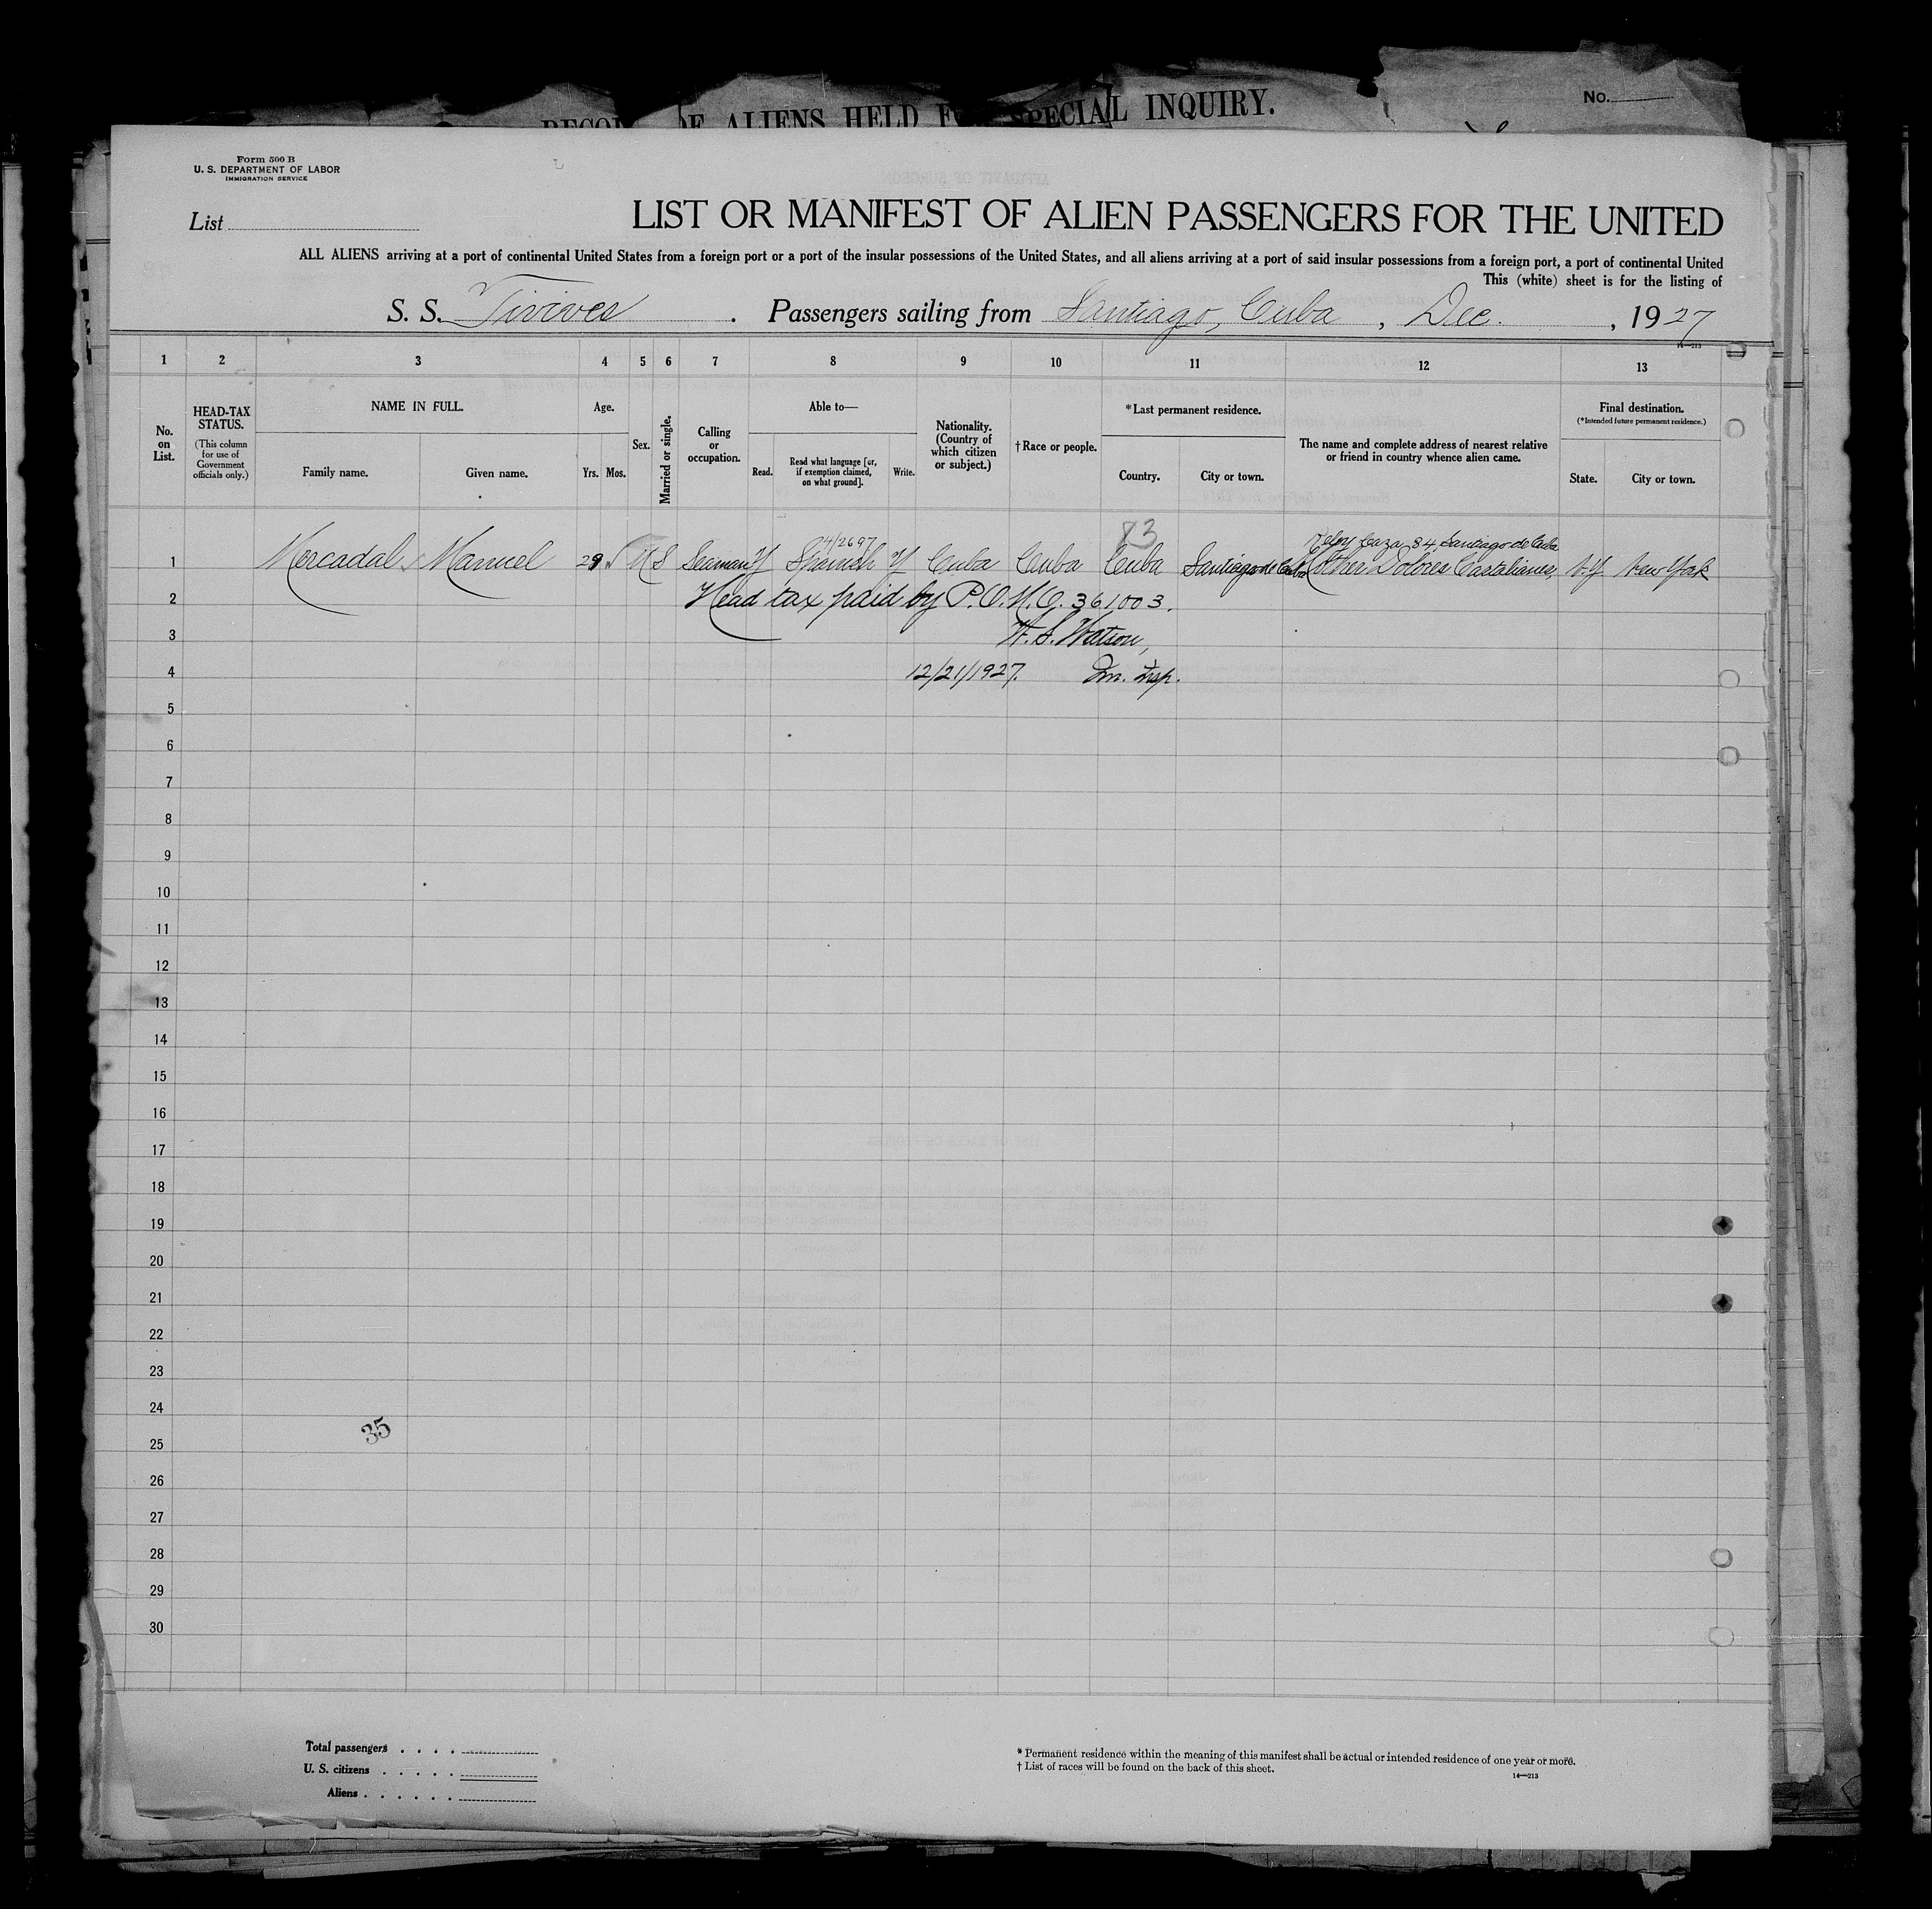 ALIENS HELD SPECIAL INQUIRY.
No.
Form 500 B
U. S. DEPARTMENT OF LABOR
IMMIGRATION SERVICE
List
LIST OR MANIFEST OF ALIEN PASSENGERS FOR THE UNITED
ALL ALIENS arriving at a port of continental United States from a foreign port or a port of the insular possessions of the United States, and all aliens arriving at a port of said insular possessions from a foreign port, a port of continental United
This (white) sheet is for the listing of
S. S. Tivives . Passengers sailing from Santiago, Cuba , Dec. , 1927
14—213
1 2 3 4 5 6 7 8 9 10 11 12 13
No. on List.
HEAD-TAX STATUS.
(This column for use of Government officials only.)
NAME IN FULL.
Family name. Given name.
Age.
Yrs. Mos.
Sex.
Married or single.
Calling or occupation.
Able to—
Read. Read what language [or, if exemption claimed, on what ground]. Write.
Nationality. (Country of which citizen or subject.)
†Race or people.
*Last permanent residence.
Country. City or town.
The name and complete address of nearest relative or friend in country whence alien came.
Final destination.
(*Intended future permanent residence.)
State. City or town.
83
4/2697
84, Santiago de Cuba
1 Mercadal Manuel 29 M S Seaman Y Spanish Y Cuba Cuba Cuba Santiago de Cuba Mother Dolores N.Y. New York
2 Head tax paid by P.O.M.O. 361003.
3 W. S. Watson,
4 12/21/1927. Im. Insp.
5
6
7
8
9
10
11
12
13
14
15
16
17
18
19
20
21
22
23
24
35
25
26
27
28
29
30
Total passengers
U. S. citizens
Aliens
* Permanent residence within the meaning of this manifest shall be actual or intended residence of one year or more.
† List of races will be found on the back of this sheet.
14—213